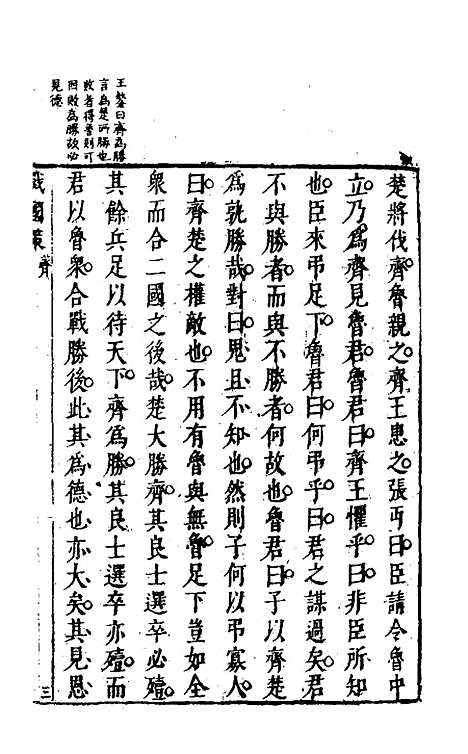 楚將伐齊魯親之齊王患之張丏曰臣請令魯中
立乃爲齊見魯君魯君曰齊王懼乎曰非臣所知
也臣來弔足下魯君曰何弔乎曰君之謀過矣君
不與勝者而與不勝者何故也魯君曰子以齊楚
爲孰勝哉對曰鬼且不知也然則子何以弔寡人
曰齊楚之權敵也不用有魯與無魯足下豈如全
衆而合二國之後哉楚大勝齊其良士選卒必殪
其餘兵足以待天下齊爲勝其良士選卒亦殪而
君以魯衆合戰勝後此其爲德也亦大矣其見恩
王鏊曰齊爲勝
言爲楚所勝也
敗者得魯則可
因敗爲勝故必
見德
戰國策 齊
三